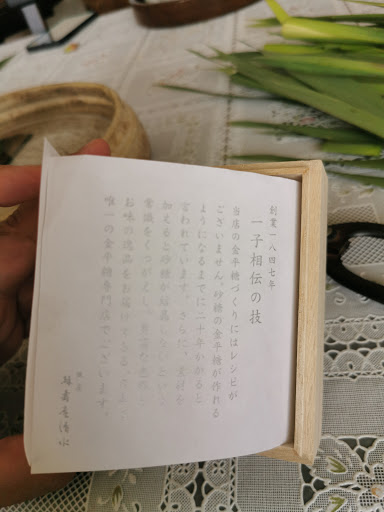 創業一八四七年
一子相伝の技
当店の金平糖づくりにはレシピが
ございません。砂糖の金平糖が作れる
ようになるまでに二十年かかると
言われています。さらに、素材を
加えると砂糖が結晶しないという
常識をくつがえし、
お味の逸品をお届けできる、
唯一の金平糖専門店でございます。
清水